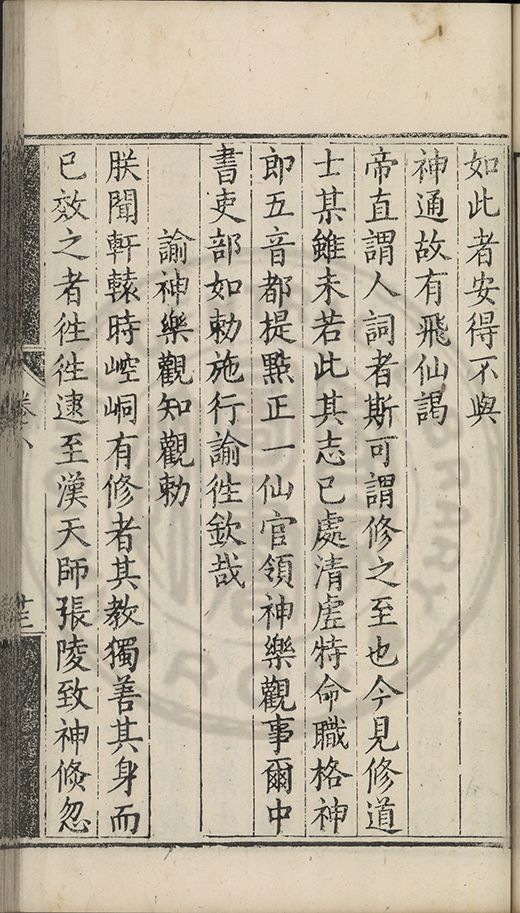 如此者安得不與
神通故有飛仙謁
帝直謂人詞者斯可謂修之至也今見修道
士某雖未若此其志已處清虛特命職格神
郎五音都提點正一仙官領神樂觀事爾中
書吏部如勅施行諭徃欽哉
諭神樂觀知觀勅
朕聞軒轅時崆峒有修者其教獨善其身而
已效之者徃徃逮至漢天師張陵致神倐忽
卷八